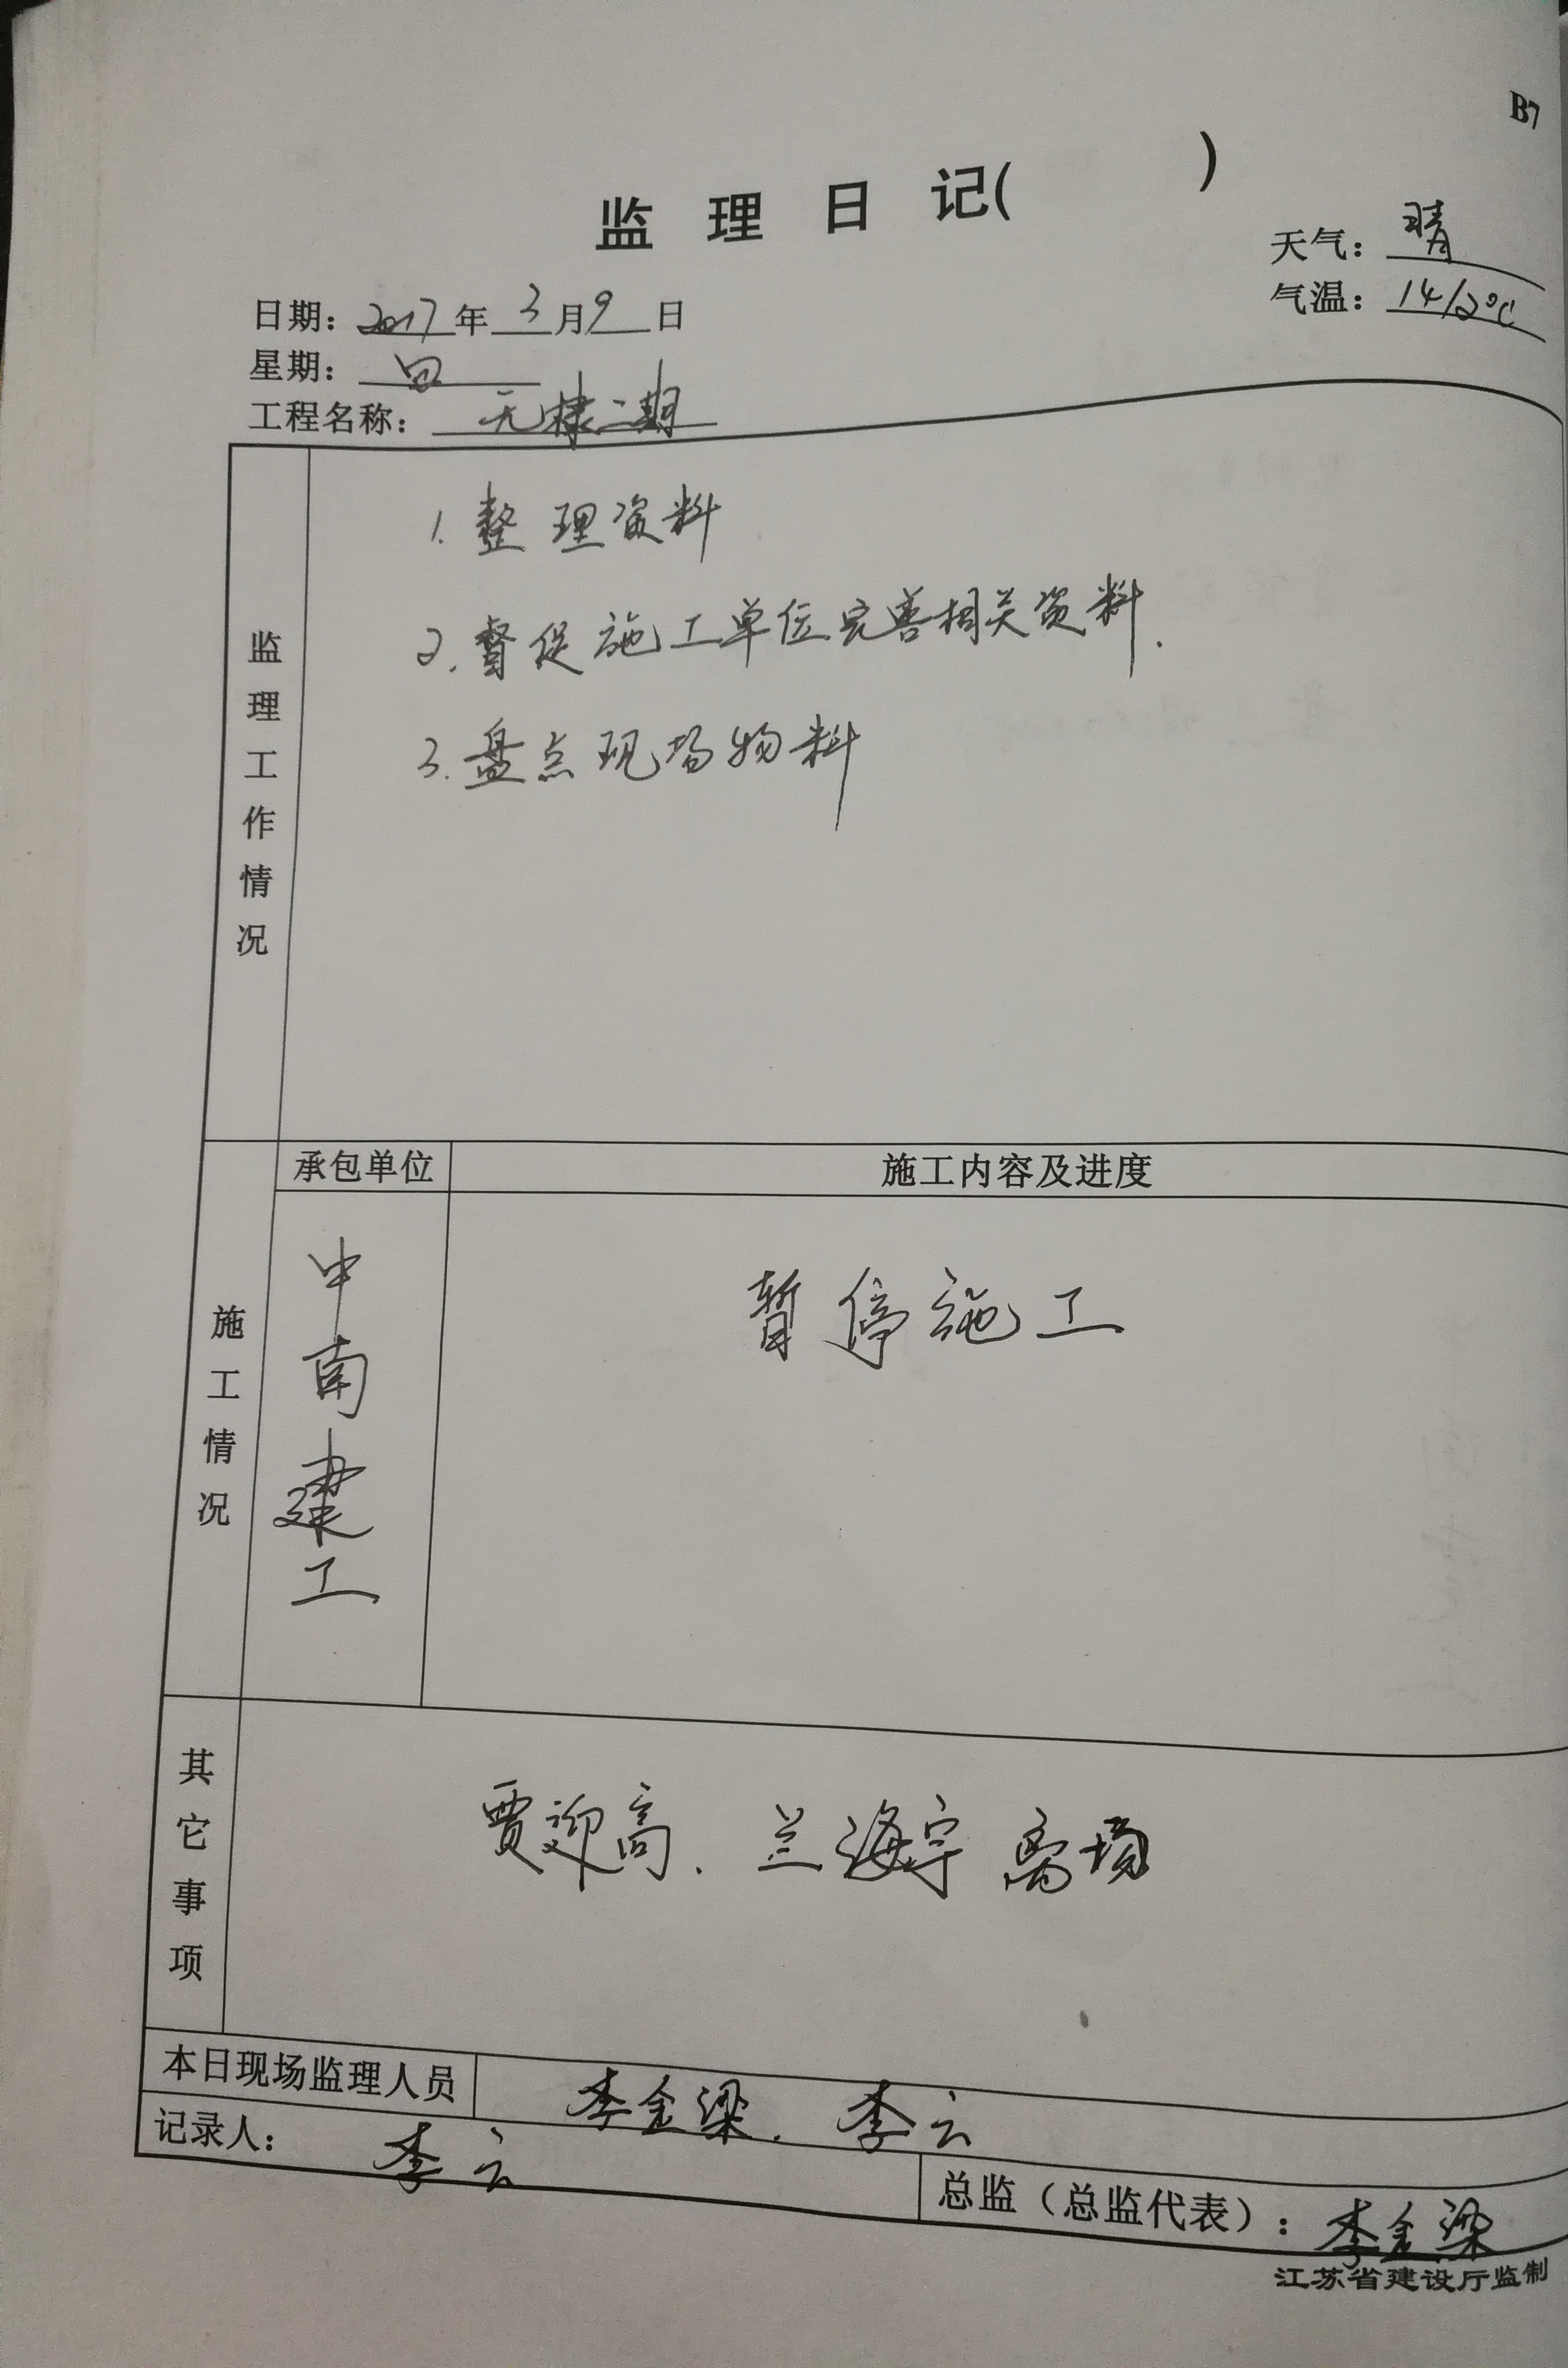 B7
监理日记( )
天气：晴
气温：14/2℃
日期：2017年3月9日
星期：四
工程名称：无棣二期
监理工作情况
1.整理资料
2.督促施工单位完善相关资料.
3.盘点现场物料
施工情况
承包单位 施工内容及进度
中南建工
暂停施工
其它事项
贾迎高、兰海宇离场
本日现场监理人员 李金梁、李云
记录人：李云
总监（总监代表）：李金梁
江苏省建设厅监制